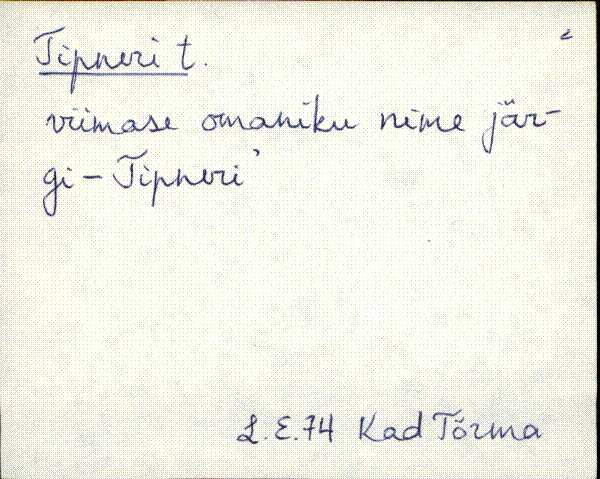 Tipneri t.
viimase omaniku nime jär-
gi - Tipneri'
L.E.74 Kad Tõrma